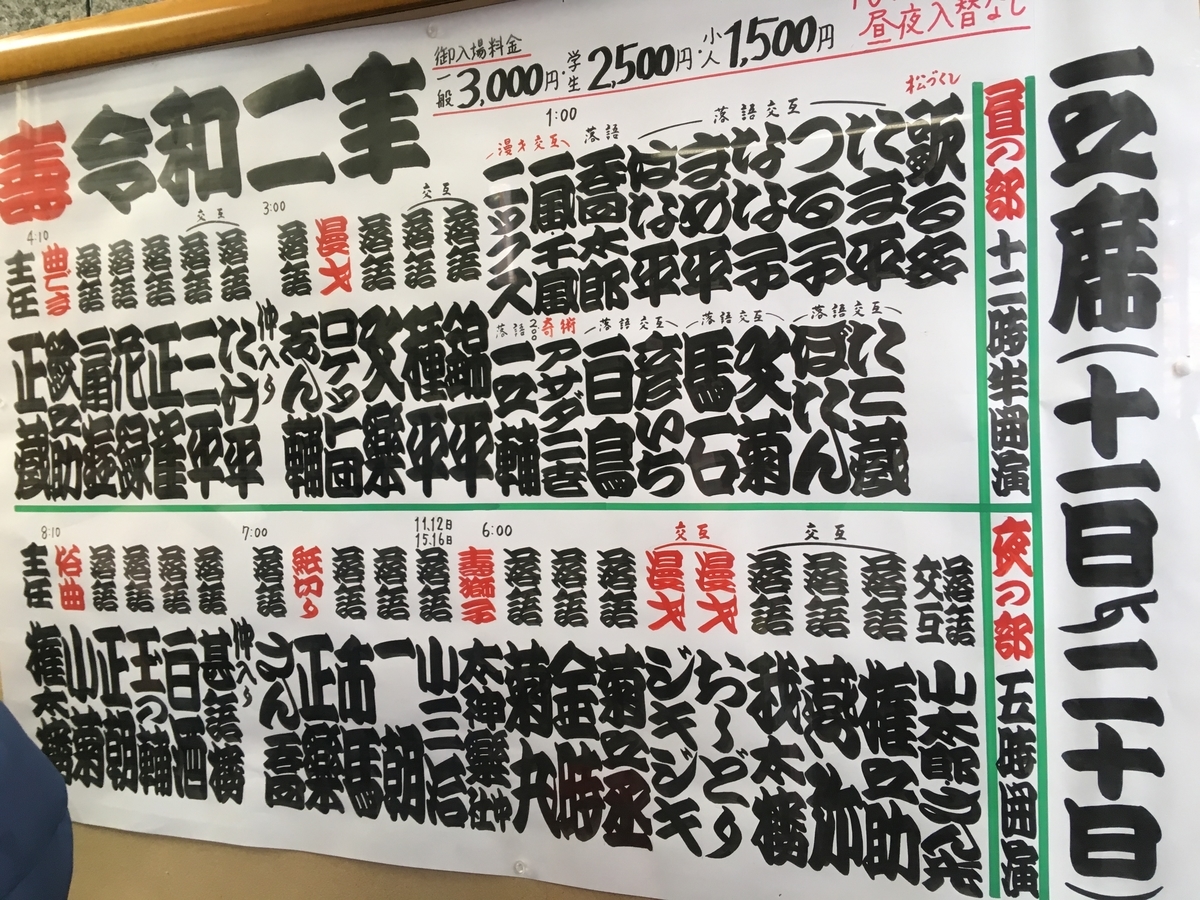 二之席(十一日より二十日)
寿 令和二年
御入場料金
一般3,000円・学生2,500円・小人1,500円
昼夜入替なし
昼の部 十二時半開演
松づくし 歌る多
落語交互
にま平
つる子
なな子
まめ平
はな平
落語 喬太郎
1:00
漫才交互
一風・千風
ニックス
落語交互
ぼたん
落語交互
文菊
馬石
落語交互
彦いち
白鳥
奇術 アサダ二世
2:00
落語 一之輔
交互
落語 錦平
落語 種平
落語 文楽
漫才 ロケット団
落語 志ん輔
3:00
仲入り
交互
落語 たけ平
落語 三平
落語 正雀
落語 花緑
落語 扇遊
曲ごま 紋之助
4:10
主任 正蔵
夜の部 五時開演
落語交互
交互
落語 権之助
落語
落語 我太楼
交互
漫才 おしどり
漫才 ジキジキ
落語 菊之丞
落語 金時
落語 菊丸
6:00
寿獅子 太神楽社中
11,12日
15,16日
落語 小三治
落語 一朝
落語 市馬
紙切り 正楽
落語 さん喬
7:00
仲入り
落語 甚語楼
落語 白酒
落語 玉の輔
落語 正朝
俗曲 小菊
8:10
主任 権太楼